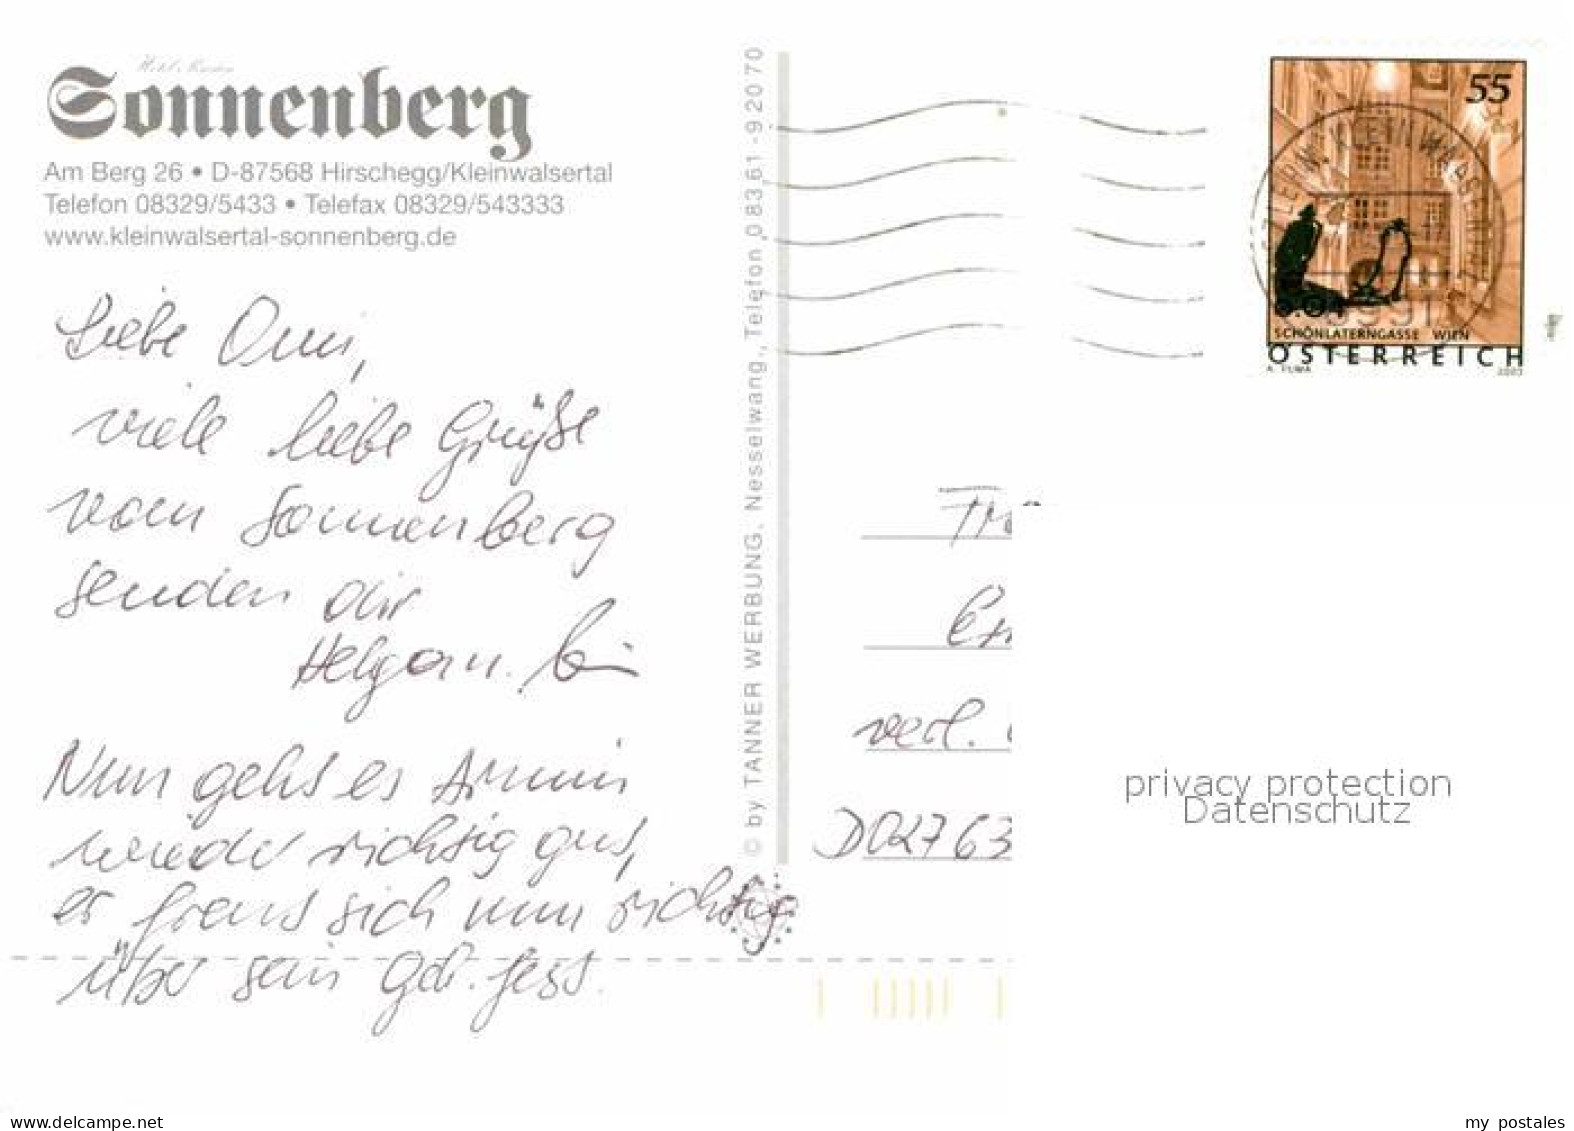 Hotel
Sonnenberg
Am Berg 26 • D-87568 Hirschegg/Kleinwalsertal
Telefon 08329/5433 • Telefax 08329/543333
www.kleinwalsertal-sonnenberg.de
Liebe Omi,
viele liebe Grüße
vom Sonnenberg
senden dir
Nun gehts es Armin
wieder richtig gut,
er freut sich nun richtig
über sein geb. fest.
© by TANNER WERBUNG, Nesselwang, Telefon 08361-92070
55
KLEINWALSERTAL
6991
0.04
SCHÖNLATERNGASSE WIEN
ÖSTERREICH
A. TUMA 2003
verl.
D02763
privacy protection
Datenschutz
www.delcampe.net
my_postales